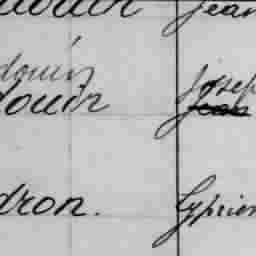 Jean
douin Josep
douin Jean
dron. Cyprien